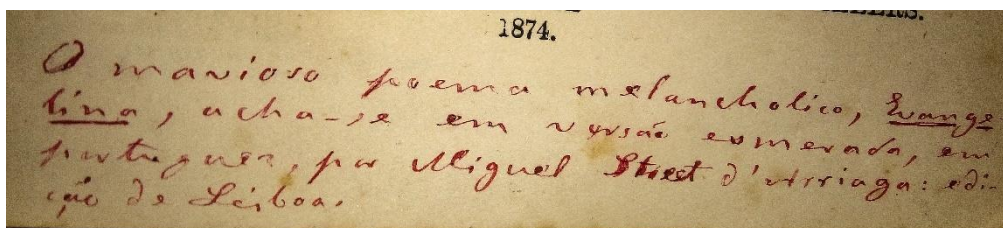 1874.
O mavioso poema melancholico, Evange
lina, acha-se em versão esmerada, em
portuguez, por Miguel Street d'Arriaga: edi-
ção de Lisboa.